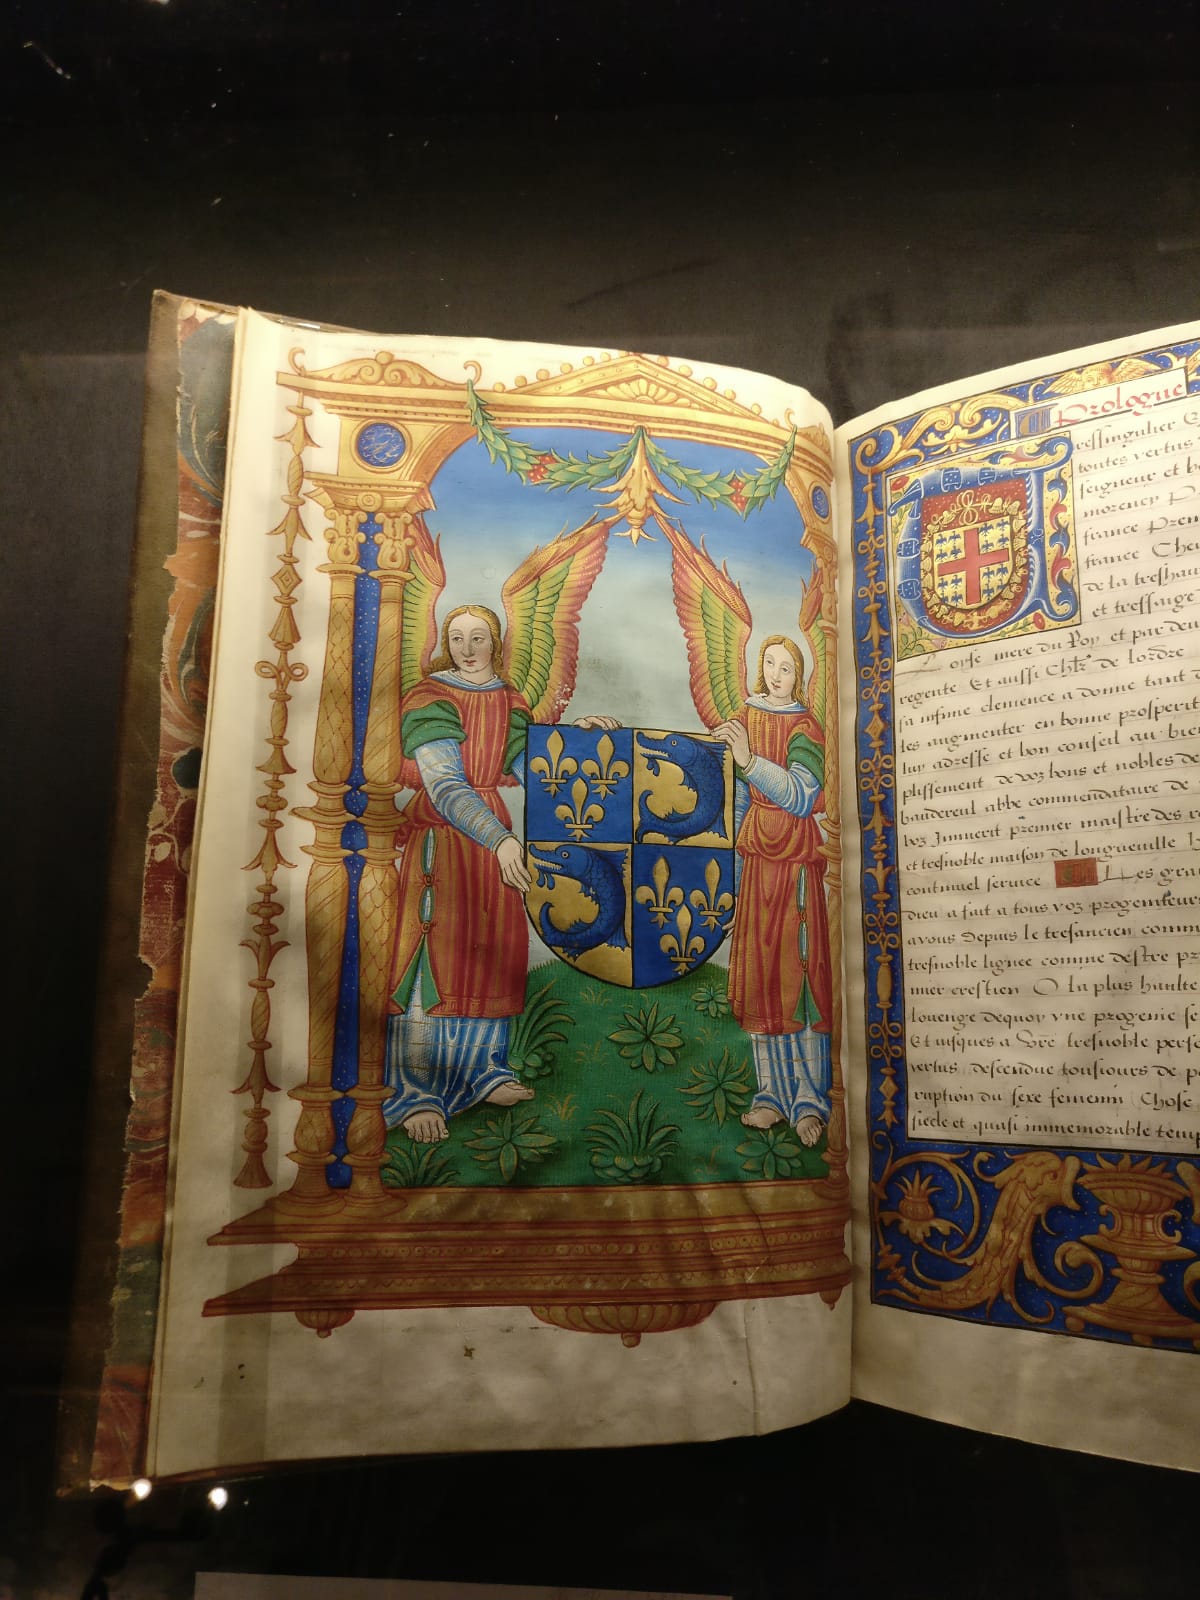 Prologue
ressingulier Et
toutes vertus
seigneur et b
morency P
france Prem
france Chev
de la treshau
et tressaige
Loyse mere du Roy et par deu
regente Et aussi Chlr de lordre
sa infinie clemence a donne tant d
les augmenter en bonne prosperit
luy adresse et bon conseil au bien
plissement de voz bons et nobles de
baudereul abbe commendataire de
voz Immerit premier maistre des re
et tresnoble maison de longueville H
continuel service Les gra
dieu a fait a tous voz progeniteurs
avous Depuis le tresancien comm
tresnoble lignee comme destre pr
mier crestien O la plus haulte
louenge dequoy vne progenie se
Et iusques a vre tresnoble perso
vertus descendue tousiours de p
ruption du sexe femenin Chose
siecle et quasi immemorable temp